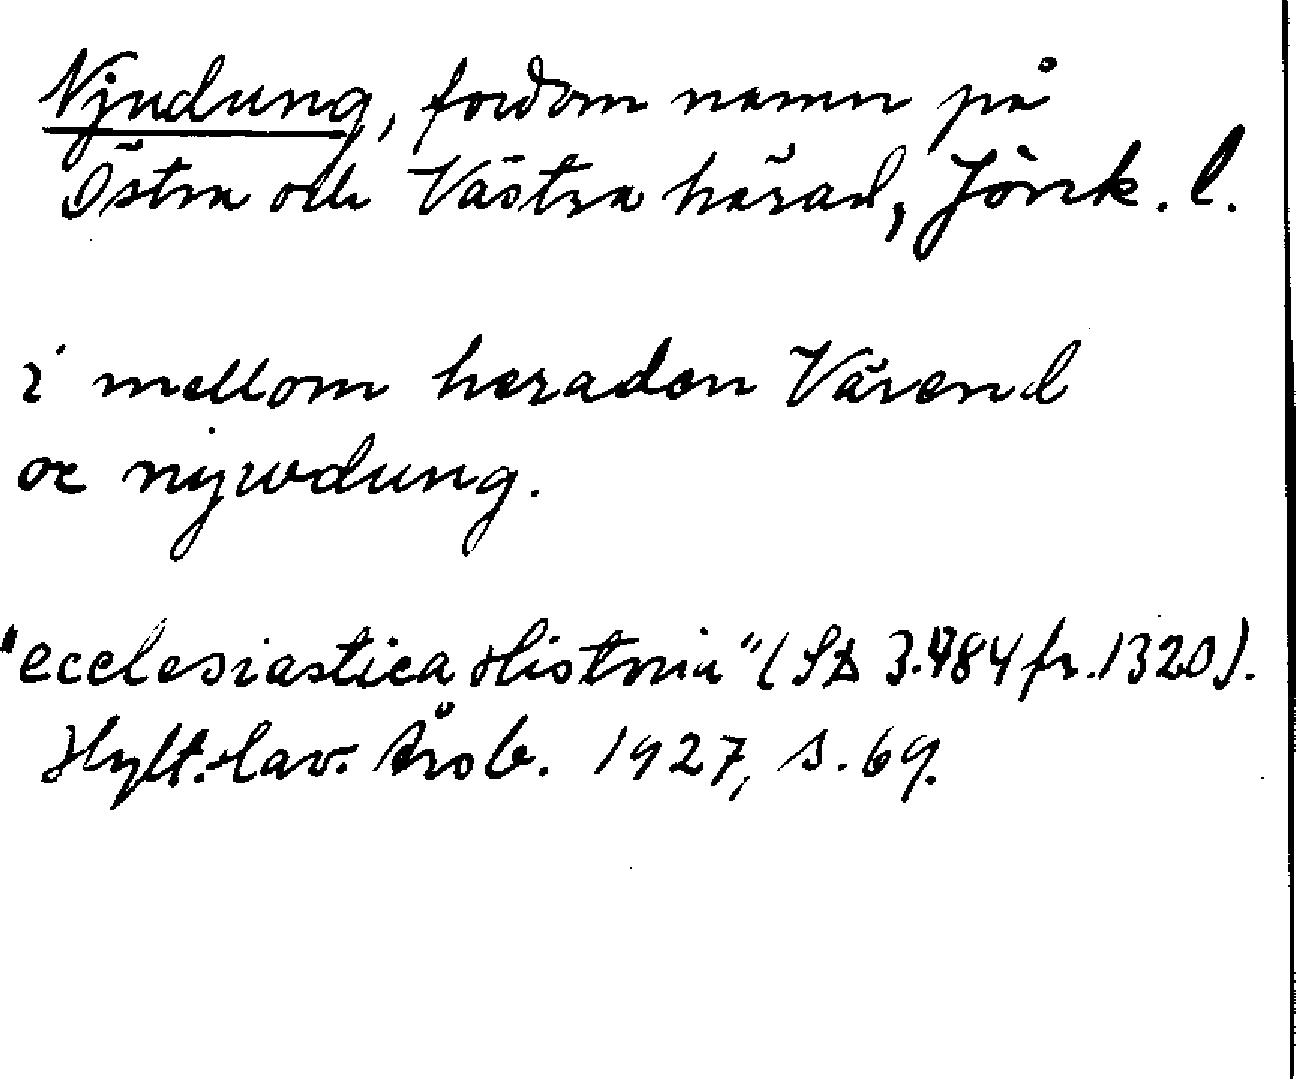 Njudung, fordom namn på
Östra och Västra härad, Jönk. l.
i mellom heraden Värend
oc nywdung.
"ecclesiastica Historia" (SD 3.484 fr. 1320).
Hylt.-Cav. Årsb. 1927, s. 69.